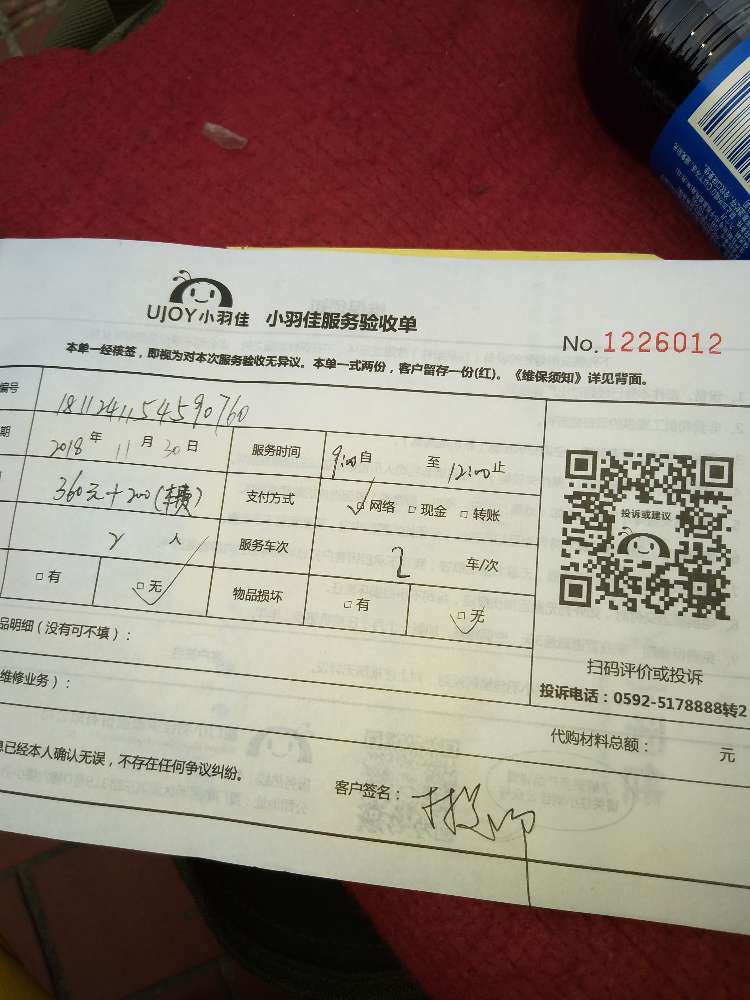 UJOY小羽佳 小羽佳服务验收单
No.1226012
本单一经续签，即视为对本次服务验收无异议。本单一式两份，客户留存一份(红)。《维保须知》详见背面。
编号 1811241154590760
期 2018 年 11 月 30 日 服务时间 9:00 自 至 12:00 止
360元+200( 支付方式 □ 网络 □ 现金 □ 转账
2 人 服务车次 2 车/次
□ 有 □ 无 物品损坏 □ 有 □ 无
投诉或建议
扫码评价或投诉
投诉电话：0592-5178888转2
品明细（没有可不填）：
维修业务）：
代购材料总额： 元
息已经本人确认无误，不存在任何争议纠纷。
客户签名：